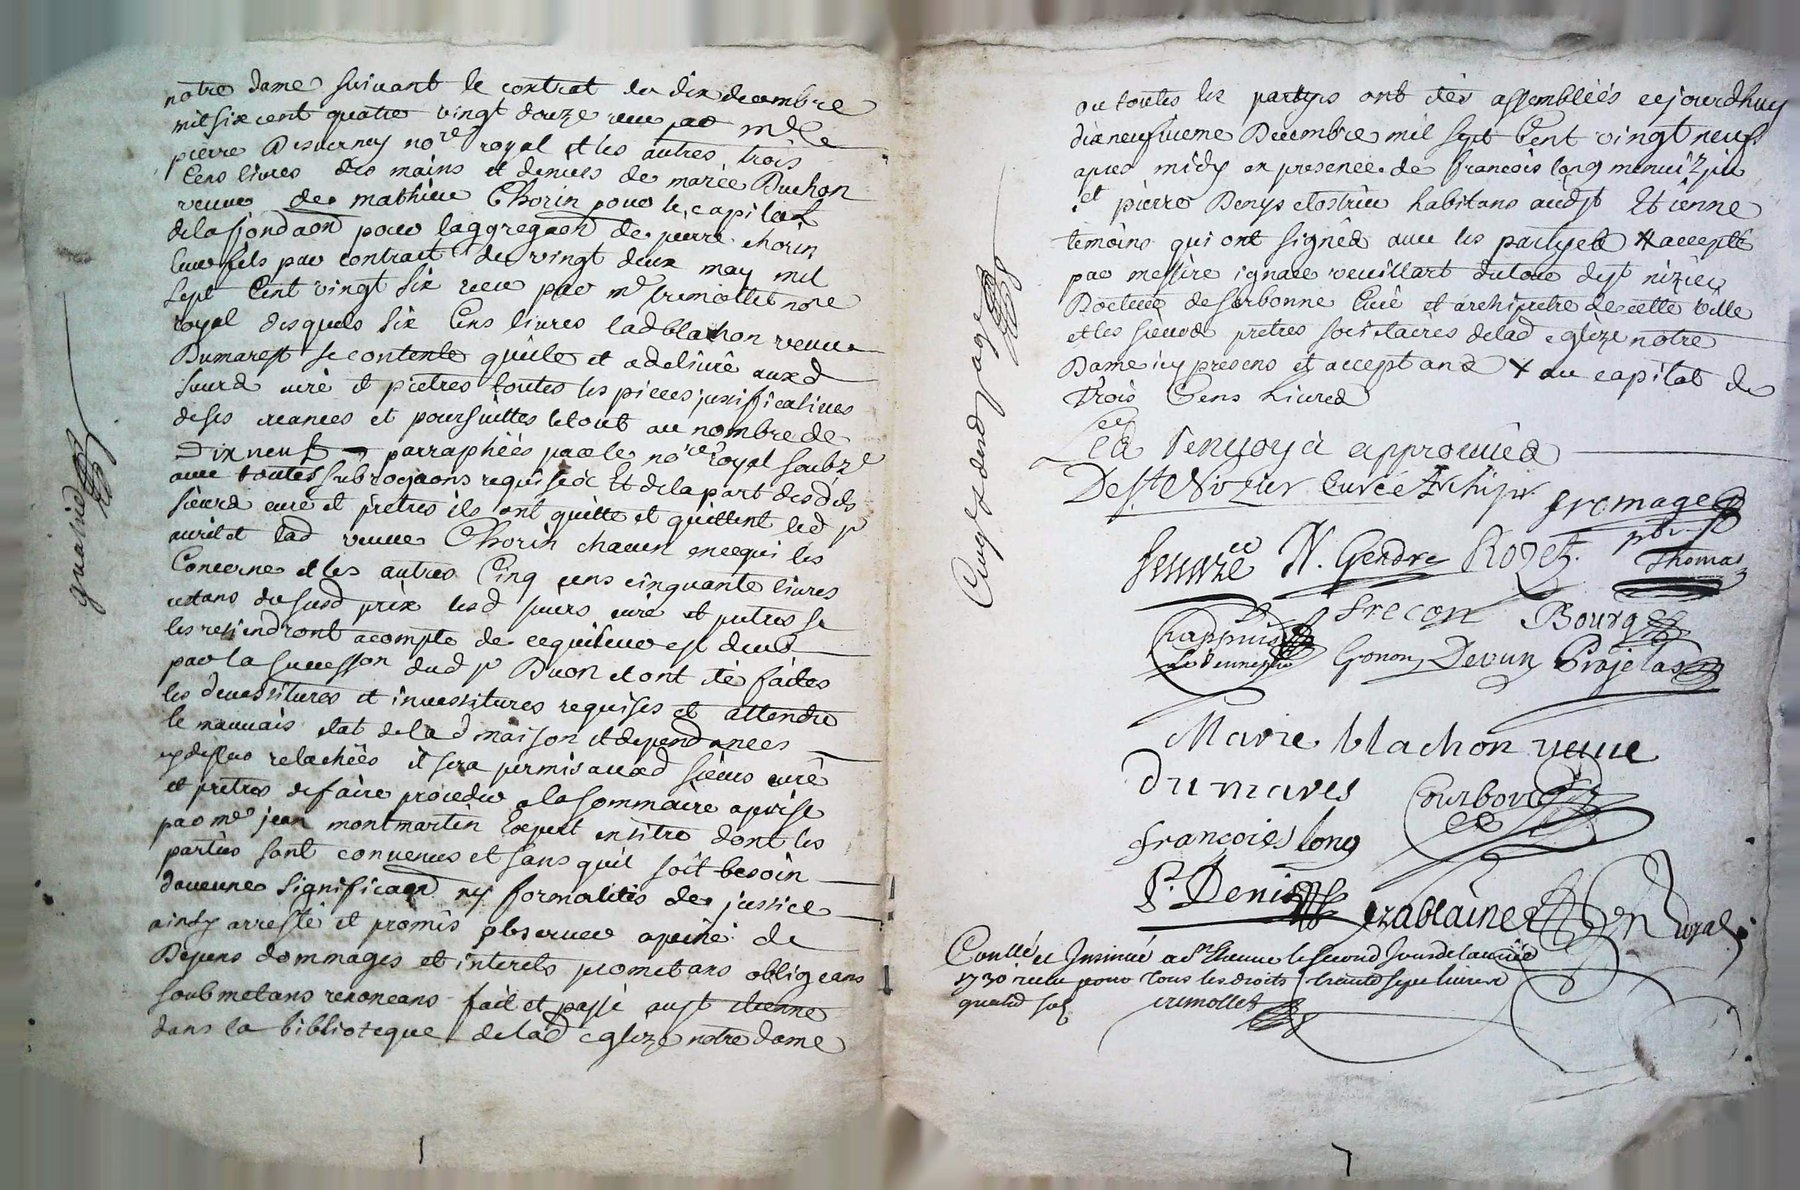 notre dame suivant le contrat du dix decembre
mil six cent quatre vingt douze receu par me
pierre Desverney nore royal et les autres trois
Cens livres des mains et deniers de marie Buchon
veuve de mathieu Thorin pour le capital
de la fondaon pour laggregaon de pierre thorin
leur fils par contract du vingt deux may mil
sept Cent vingt six receu par me trimollet nore
royal desquels six Cens livres lad blachon veuve
Dumarest se contente quite et a delivré auxd
sieurs curé et pretres toutes les pieces justificatives
de ses creances et poursuittes le tout au nombre de
Dix neuf parraphées par le nore royal soubzé
avec toutes subrogaons requises Et de la part desdits
sieurs curé et pretres ils ont quitté et quittent led sr
avril et lad veuve Thorin chacun en ce qui les
Concerne et les autres Cinq cens cinquante livres
restans du susd prix lesd sieurs curé et pretres se
les retiendront acompte de ce qui leur est deub
par la succession dud sr Buon et ont été faites
les devestitures et investitures requises et attendu
le mauvais etat de lad maison et dependances
cy dessus relachées il sera permis auxd sieurs curé
et pretres de faire proceder a la sommaire aprise
par me jean montmartin Expert en titre dont les
parties sont convenues et sans quil soit besoin
daucune significaon ny formalités de justice
ainsy arresté et promis observer apeine de
Depens dommages et interets prometans obligeans
soubmetans renonceans fait et passé a st etienne
dans la biblioteque de lad eglize notre dame
quarine
ou toutes les partyes ont étés assemblées cejourdhuy
dix neufvieme Decembre mil sept Cent vingt neuf
apres midy en presence de francois long menuizier
et pierre Denys habitans aud st Etienne
temoins qui ont signés avec les partyes X accepté
par messire ignace veuillart de st nizier
Docteur de sorbonne Curé et archipretre de cette ville
et les sieurs pretres societaires de lad eglize notre
Dame icy presens et acceptans X au capital de
trois Cens Livres
Ces renvoy à approuvés
De St Nizier Curé et Archipr.
fromage
pbr
N. Gendre Royet
Thomas
frecon Bourg
chappuis
Gonon Devun Projelas
Marie blachon veuve
du mares
Courbon
francoies long
P. Denis
Ezablaine
Conllé et Insinué a St Etienne le second Jour de lannée
1730 receu pour tous les droits trente sept livres
quatre sols trimollet